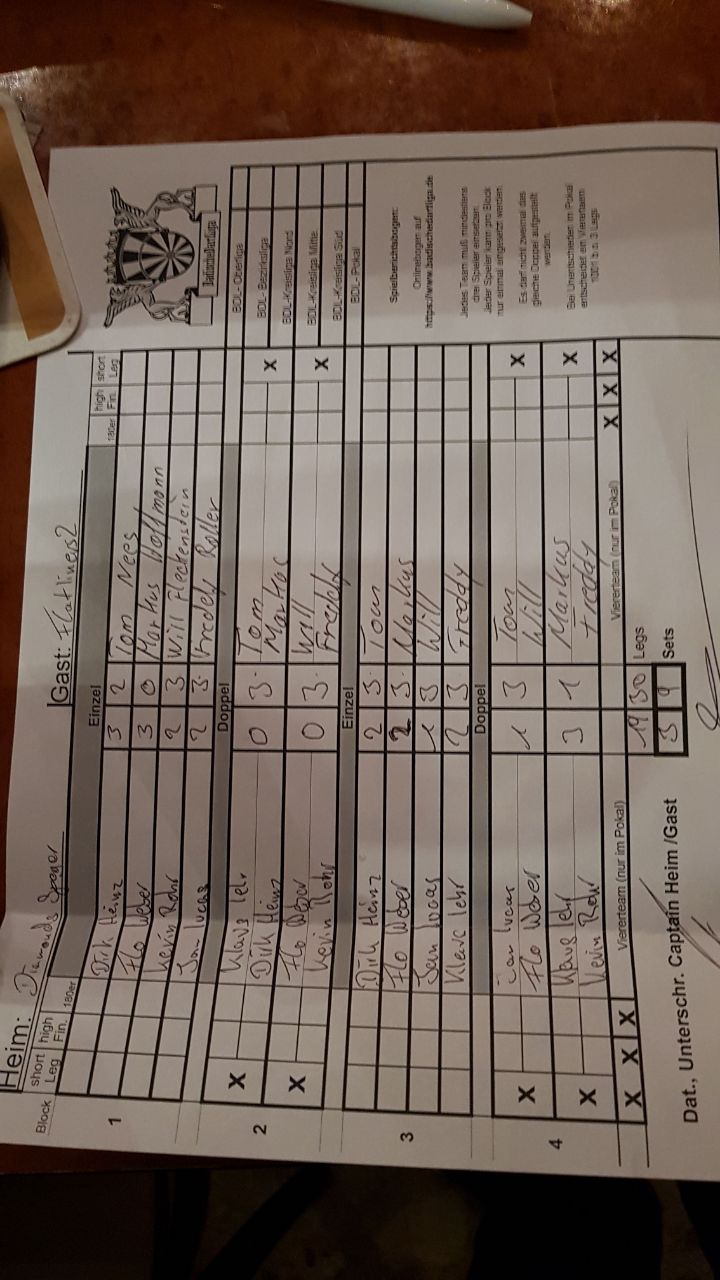 Heim: Diamonds Speyer Gast: Flatliners 2
Block short Leg high Fin. 180er Einzel 180er high Fin. short Leg
1 Dirk Heinz 3 2 Tom Nees
Flo Weber 3 0 Markus Hoffmann
Kevin Rohr 2 3 Will Fleckenstein
Jan Lucas 2 3 Freddy Roller
Doppel
2 X Klaus Lehr 0 3 Tom X
Dirk Heinz Markus
X Flo Weber 0 3 Will X
Kevin Rohr Freddy
Einzel
3 Dirk Heinz 2 3 Tom
Flo Weber 2 3 Markus
Jan Lucas 1 3 Will
Klaus Lehr 2 3 Freddy
Doppel
4 X Jan Lucas 1 3 Tom X
Flo Weber Will
X Klaus Lehr 3 1 Markus X
Kevin Rohr Freddy
X X X Viererteam (nur im Pokal) Viererteam (nur im Pokal) X X X
19 30 Legs
3 9 Sets
Dat., Unterschr. Captain Heim /Gast
Badischedartliga
BDL- Oberliga
BDL- Bezirksliga
BDL-Kreisliga Nord
BDL-Kreisliga Mitte
BDL-Kreisliga Süd
BDL-Pokal
Spielberichtsbogen:
Onlinebogen auf
https://www.badischedartliga.de
Jedes Team muß mindestens
drei Spieler einsetzen.
Jeder Spieler kann pro Block
nur einmal eingesetzt werden.
Es darf nicht zweimal das
gleiche Doppel aufgestellt
werden.
Bei Unentschieden im Pokal
entscheidet ein Viererteam
1001 b.o. 3 Legs